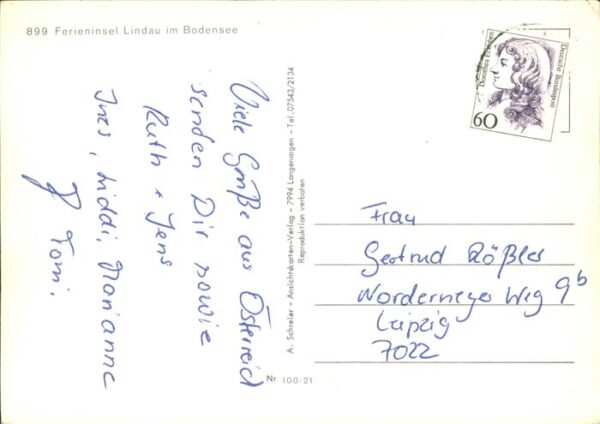 899 Ferieninsel Lindau im Bodensee
Viele Grüße aus Österreich
senden Dir sowie
Ruth + Jens
Ines, Liddi, Marianne
Tomi.
A. Schreier - Ansichtskarten-Verlag - 7994 Langenargen - Tel. 07543/2134
Reproduktion verboten
Nr. 100-21
Deutsche Bundespost
Dorothea Erxleben
60
Frau
Gertrud Rößler
Norderneyer Weg 9b
Leipzig
7022